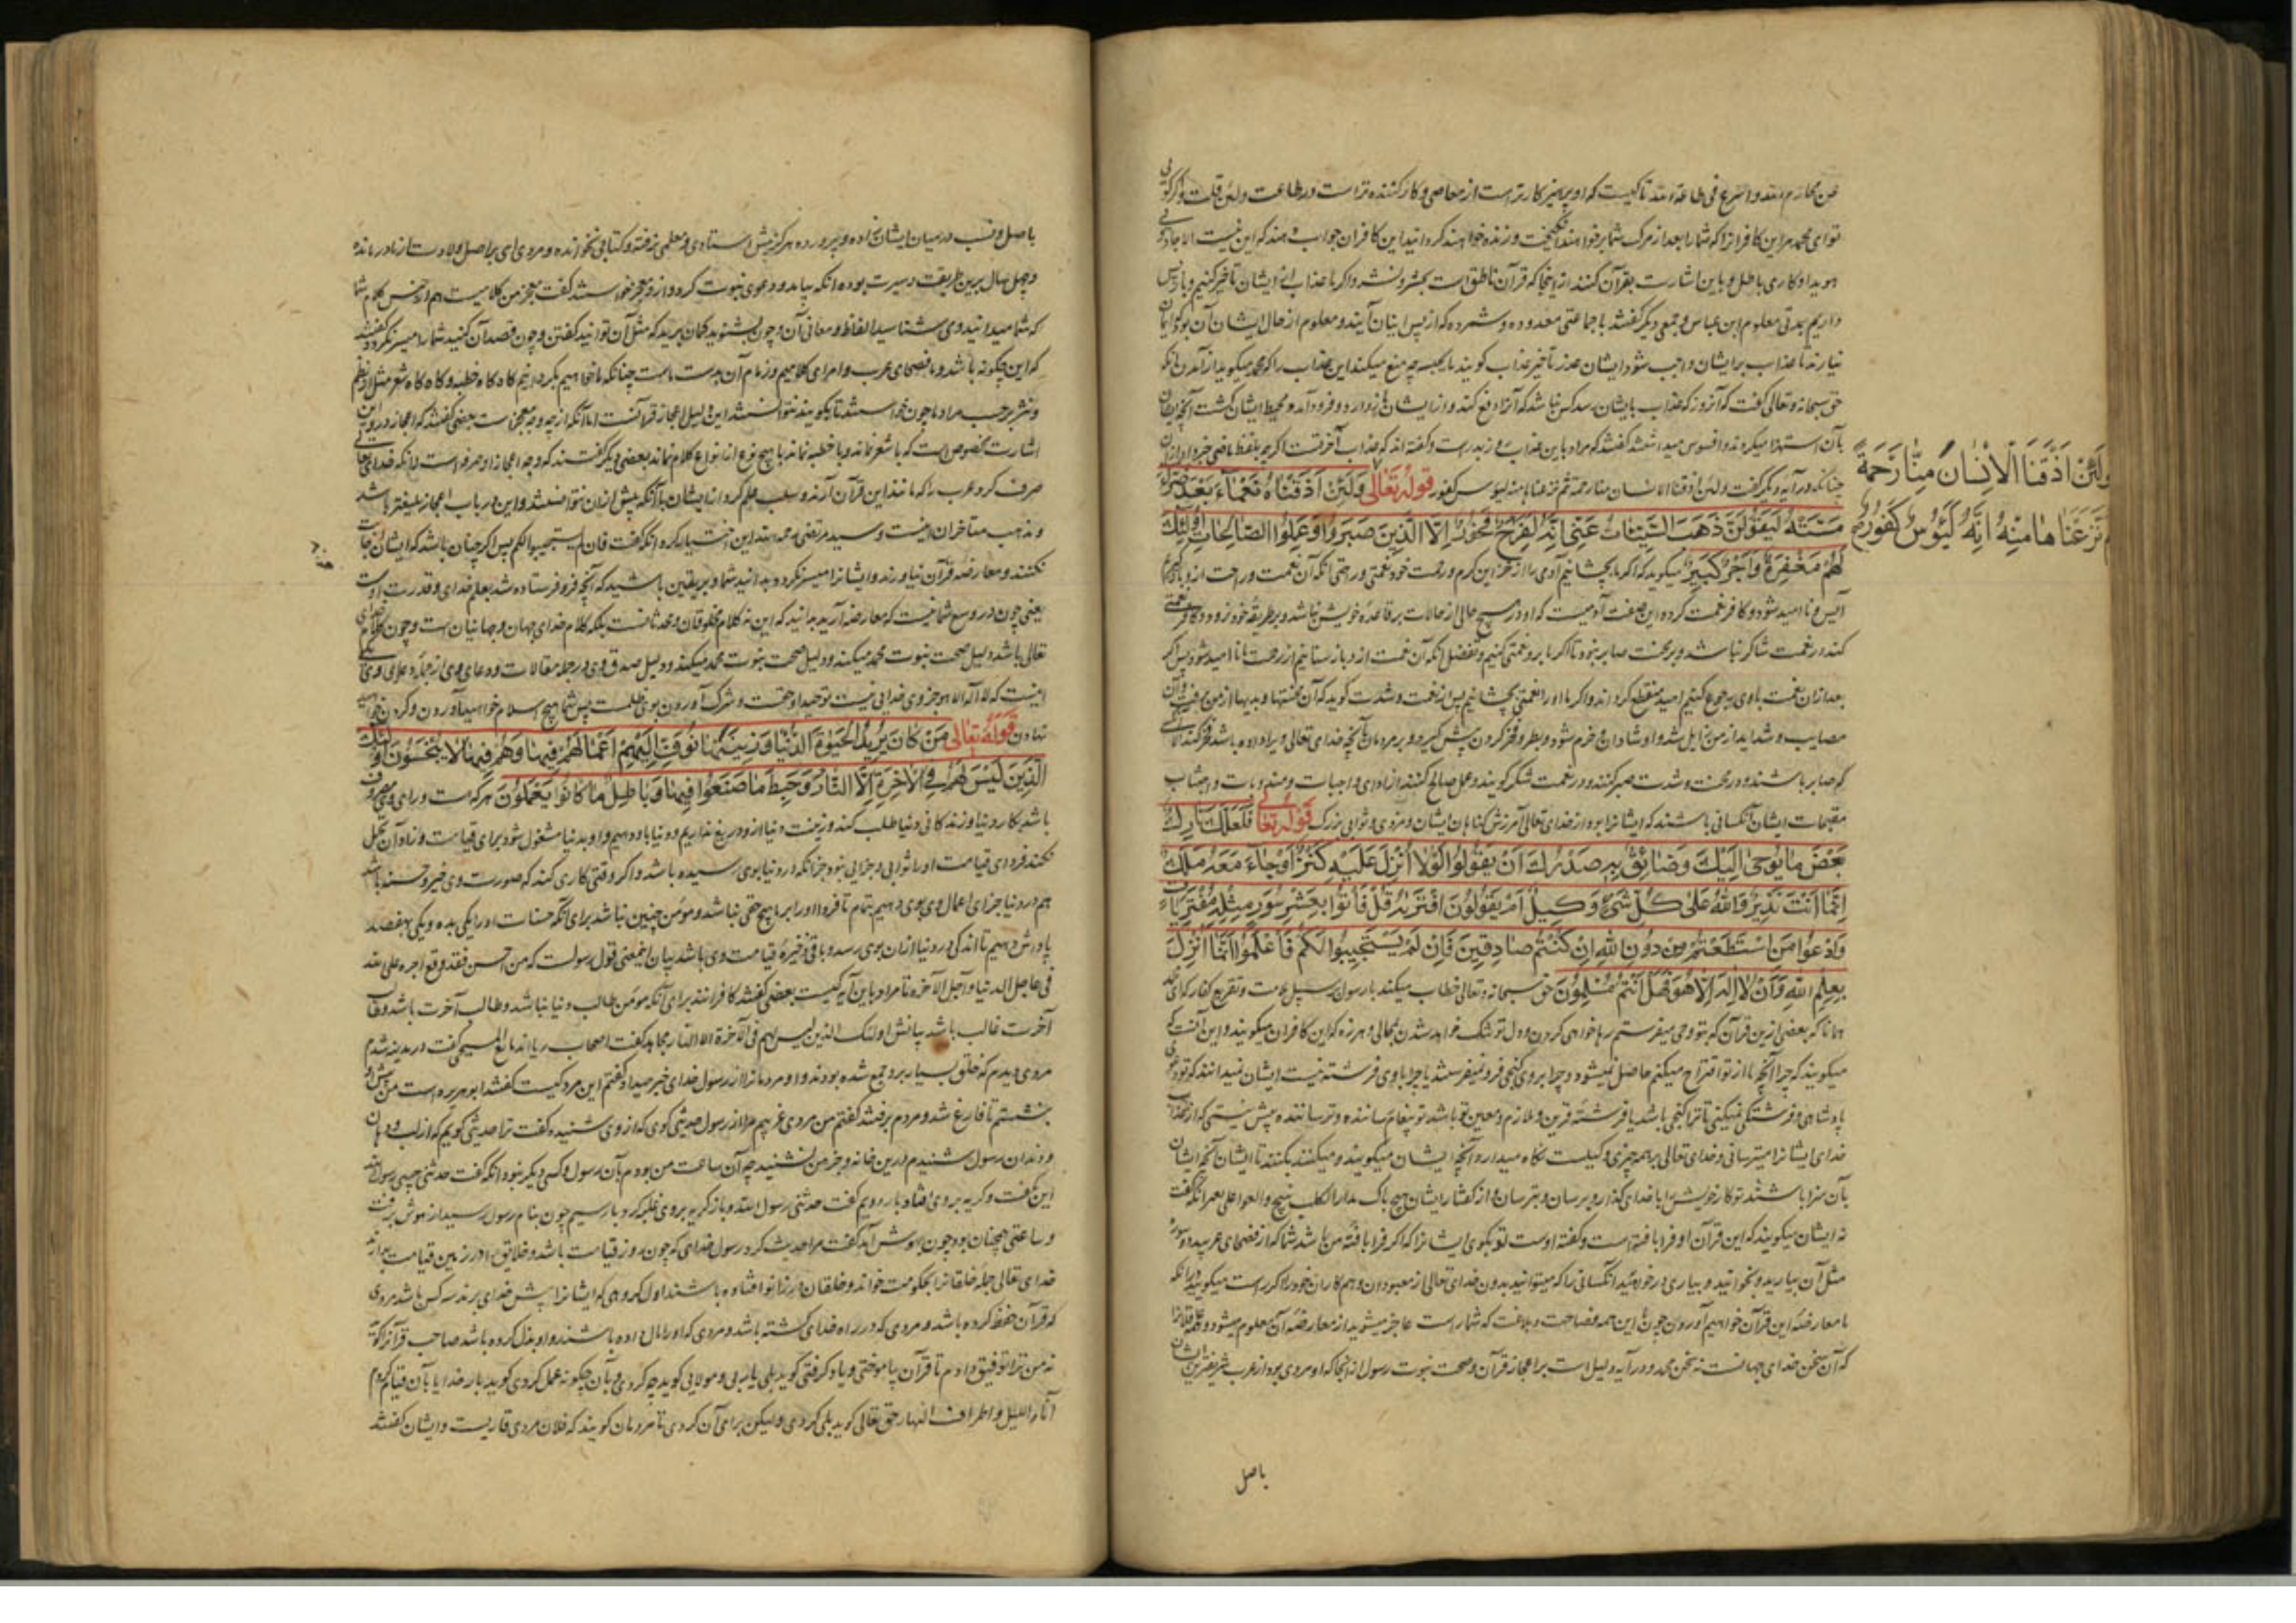 عن محارم الله و اسرع فی طاعة الله تا کیست که او پرهیز کارتر است از معاصی و کار کننده تر است در طاعت ولئن قلت و اگر کوئی
تو ای محمد مر این کافرانرا که شما را بعد از مرک شما بر خواهند انکیخت و زنده خواهند کردانید این کافران جواب دهند که این نیست الا جادوئی
هویدا و کاری باطل و باین اشارت بقرآن کنند از اینجا که قرآن ناطق است بحشر و نشر و اکر ما عذاب از ایشان تاخیر کنیم و باز پس
داریم بمدتی معلوم ابن عباس و جمعی دیکر کفتند با جماعتی معدوده و شمرده که از پس اینان آیند و معلوم از حال ایشان آن بود که ایمان
نیارند تا عذاب بر ایشان واجب شود ایشان عند تاخیر عذاب کویند ما یحبسه چه منع میکند این عذاب را که محمد میکوید از آمدن آنکه
حق سبحانه و تعالی کفت که آنروز که عذاب بایشان رسد کس نباشد که آنرا دفع کند و از ایشان باز دارد و فرود آمد و محیط ایشان کشت آنچه ایشان
بآن استهزا میکردند و افسوس میداشتند کفتند که مراد باین عذاب روز بدر است و کفته اند که عذاب آخرتست اکرچه بلفظ ماضی خبر داد از آن
چنانکه در آیه دیکر کفت ولئن اذقنا الانسان منا رحمة ثم نزعناها منه لیوس کفور قوله تعالی وَلَئِنْ اَذَقْنَاهُ نَعْمَاءَ بَعْدَ ضَرَّاءَ
ولَئِنْ اَذَقْنَا الْاِنْسانَ مِنّا رَحْمَةً
ثُمَّ نَزَعْناها مِنْهُ اِنَّهُ لَیَؤُسٌ کَفُورٌ
مَسَّتْهُ لَیَقُولَنَّ ذَهَبَ السَّیِّئاتُ عَنّی اِنَّهُ لَفَرِحٌ فَخُورٌ اِلَّا الَّذِینَ صَبَرُوا وَعَمِلُوا الصّالِحاتِ اُولئِکَ
لَهُمْ مَغْفِرَةٌ وَاَجْرٌ کَبِیرٌ میکوید که اکر ما بچشانیم آدمی را از خزاین کرم و رحمت خود نعمتی و راحتی آنکه آن نعمت و راحت از او باز کیریم
آیس و نا امید شود و کافر نعمت کردد این صفت آدمیست که او در هیچ حالی از حالات بر قاعده خویش نباشد و بر طریقه خود نرود کافر نعمتی
کند در نعمت شاکر نباشد و بر محنت صابر نبود تا اکر ما برو نعمتی کنیم و تفضل آنکه آن نعمت ازو باز ستانیم از رحمت ما نا امید شود پس اکر
بعد از آن نعمت باوی رجوع کنیم امید منقطع کرداند و اکر ما او را نعمتی بچشانیم پس از نعمت و شدت کوید که آن محنتها و بدیها از من برفت و آن
مصایب و شداید از من زایل شد و او شادان و خرم شود و بطر و فخر کردن پیش کیرد و بر مردمان بآنچه خدای تعالی ویرا داده باشد فخر کند الا آنان
که صابر باشند و در محنت و شدت صبر کنند و در نعمت شکر کویند و عمل صالح کنند از ادای واجبات و مندوبات و اجتناب
مقبحات ایشان آنکسانی باشند که ایشانرا بود از خدای تعالی آمرزش کناهان ایشان و مزدی و ثوابی بزرک قوله تعالی فَلَعَلَّکَ تارِکٌ
بَعْضَ ما یُوحی اِلَیْکَ وَضائِقٌ بِهِ صَدْرُکَ اَنْ یَقُولُوا لَوْلا اُنْزِلَ عَلَیْهِ کَنْزٌ اَوْ جاءَ مَعَهُ مَلَکٌ
اِنَّما اَنْتَ نَذِیرٌ وَاللهُ عَلی کُلِّ شَیْءٍ وَکِیلٌ اَمْ یَقُولُونَ افْتَریهُ قُلْ فَأْتُوا بِعَشْرِ سُوَرٍ مِثْلِهِ مُفْتَرَیاتٍ
وَادْعُوا مَنِ اسْتَطَعْتُمْ مِنْ دُونِ اللهِ اِنْ کُنْتُمْ صادِقِینَ فَاِنْ لَمْ یَسْتَجِیبُوا لَکُمْ فَاعْلَمُوا اَنَّما اُنْزِلَ
بِعِلْمِ اللهِ وَاَنْ لا اِلهَ اِلّا هُوَ فَهَلْ اَنْتُمْ مُسْلِمُونَ حق سبحانه و تعالی خطاب میکند با رسول بر سبیل ملامت و تقریع کفار که ای محمد
همانا که بعضی ازین قرآن که بتو وحی میفرستم رها خواهی کردن و دل تو تنک خواهد شدن بمحالی و هرزه که این کافران میکویند و این آنست که
میکویند که چرا آنچه ما از تو اقتراح میکنم حاصل نمیشود و چرا بر وی کنجی فرو نمیفرستند یا چرا با وی فرشته نیست ایشان نمیدانند که تو دعوی
پادشاهی و فرشتکی نمیکنی تا ترا کنجی باشد یا فرشته قرین و ملازم و معین تو باشد تو پیغام رساننده و ترساننده بیش نیستی که از عذاب
خدای ایشانرا میترسانی و خدای تعالی بر همه چیزی وکیلست نکاه میدارد آنچه ایشان میکویند و میکنند تا ایشان آنچه ایشان
بآن سزا باشند تو کار خویش را با خدای کذار و برسان و بترسان و از کفتار ایشان هیچ باک مدار
نه ایشان میکویند که این قرآن او فرا بافته است و کفته اوست تو بکوی ایشانرا که اکر فرا بافته من باشد شما که از فصحای عربید ده سوره
مثل آن بیارید و بخوانید و بیاری در خواهید آنکسانی را که میتوانید بدون خدای تعالی از معبودان و هم کاران خود را اکر راست میکویید
با معارضه این قرآن خواهیم آوردن چون این همه فصاحت و بلاغت که شما راست عاجز میشوید از معارضه آن معلوم میشود
که آن سخن خدای جهانست نه سخن محمد و در آیه دلیل است بر اعجاز قرآن و صحت نبوت رسول از آنجا که او مردی بود از عرب شریفترین ایشان
باصل
باصل و نسب در میان ایشان زاده و پرورده هرکز پیش استادی و معلمی نرفته و کتابی نخوانده و مردی امی بر اصل ولادت از مادر مانده
و چهل سال برین طریقت و سیرت بوده آنکه بیامد و دعوی نبوت کرد و ازو معجز خواستند کفت معجز من کلامیست هم از جنس کلام شما
که شما میدانید و می شناسید الفاظ و معانی آن و چون بشنوید کمان برید که مثل آن توانید کفتن و چون قصد آن کنید شما را میسر نکردد کفتند
که این چکونه باشد و ما فصحای عرب و امرای کلامیم و زمام آن بدست ماست چنانکه ما خواهیم بکردانیم کاه کاه خطبه و کاه کاه شعر مثل از نظم
و نثر بر حسب مراد ما چون خواستند تا بکویند نتوانستند این دلیل اعجاز قرآنست اما آنکه از چه وجه معجز است بعضی کفتند که اعجاز درو این
اشارت مخصوص است که با شعر نماند و با خطبه نماند با هیچ نوع از انواع کلام نماند بعضی دیکر کفتند که وجه اعجاز او صرفه است و آنکه خدای تعالی
صرف کرد عرب را که مانند این قرآن آرند و سلب علم کرد از ایشان با آنکه پیش از آن توانستند و این در باب اعجاز بلیغتر باشد
و مذهب متاخران اینست و سید مرتضی رحمه الله این اختیار کرده آنکه کفت فان لم یستجیبوا لکم پس اکر چنان باشد که ایشان اجابت
نکنند و معارضه قرآن نیاورند و ایشانرا میسر نکردد بدانید شما و بر یقین باشید که آنچه فرو فرستاده شد بعلم خدای و قدرت اوست
یعنی چون در وسع شما نیست که معارضه آرید بدانید که این نه کلام مخلوقان و محدثانست بلکه کلام خدای جهان و جهانیان است و چون کلام خدای
تعالی باشد دلیل صحت نبوت محمد میکند و دلیل صحت نبوت محمد میکند و دلیل صدق وی در جمله مقالات و دعاوی وی از جمله دعاوی وی یکی
اینست که لا اله الا هو جز وی خدایی نیست توحید او حقست و شرک آوردن بوی ظلمست پس شما هیچ اسلام خواهید آوردن و کردن خواهید
نهادن قوله تعالی مَنْ کانَ یُرِیدُ الْحَیوةَ الدُّنْیا وَزِینَتَها نُوَفِّ اِلَیْهِمْ اَعْمالَهُمْ فِیها وَهُمْ فِیها لا یُبْخَسُونَ اُولئِکَ
الَّذِینَ لَیْسَ لَهُمْ فِی الْاخِرَةِ اِلَّا النّارُ وَحَبِطَ ما صَنَعُوا فِیها وَباطِلٌ ما کانُوا یَعْمَلُونَ هر که است و رای وی مصروف
باشد بکار دنیا و زندکانی دنیا طلب کند و زینت دنیا ازو دریغ نداریم و دنیا باو دهیم و او بدنیا مشغول شود برای قیامت و زاد آن عمل
نکند فردای قیامت او را ثوابی و جزایی نبود جز آنکه در دنیا بوی رسیده باشد و اکر وقتی کاری کند که صورت وی خیر و حسنه باشد
هم در دنیا جزای اعمال وی بوی دهیم بتمام تا فردا او را بر ما هیچ حقی نباشد و مؤمن چنین نباشد برای آنکه حسنات او را یکی بده و یکی بهفصد
پاداش دهیم تا اندکی در دنیا از آن بوی رسد و باقی ذخیره قیامت وی باشد بیان اینمعنی قول رسولست که من احسن فقد وقع اجره علی الله
فی عاجل الدنیا و آجل الآخرة تا مراد باین آیه کیست بعضی کفتند کافرانند برای آنکه مؤمن طالب دنیا نباشد و طالب آخرت باشد و طلب
آخرت غالب باشد بیانش اولئک الذین لیس لهم فی الآخرة الا النار مجاهد کفت اصحاب ریااند مانع المسیحی کفت در مدینه شدم
مردی دیدم که خلق بسیار برو جمع شده بودند و او مردمانرا از رسول خدای خبر میداد کفتم این مرد کیست کفتند ابو هریره است من پیش او
بنشستم تا فارغ شد و مردم برفتند کفتم من مردی غریبم مرا از رسول حدیثی کوی که از وی شنیده کفت ترا حدیثی کویم که از لب و دهان
و دندان رسول شنیدم درین خانه و جز من نشنید چه آن ساعت من بودم بآن رسول و کسی دیکر نبود آنکه کفت حدثنی حبیبی رسول الله
این کفت و کریه بر وی افتاد بار دویم کفت حدثنی رسول الله و باز کریه بر وی غلبه کرد بار سیم چون بنام رسول رسید از هوش برفت
و ساعتی همچنان بود چون بهوش آمد کفت مرا حدیث کرد رسول خدای که چون روز قیامت باشد و خلایق را در زمین قیامت بدارند
خدای تعالی جمله خلقانرا بحکومت خواند و خلقان در زانو افتاده باشند اول کروهی که ایشانرا پیش خدای برند سه کس باشد مردی
که قرآن حفظ کرده باشد و مردی که در راه خدای کشته باشد و مردی که او را مال داده باشند و او بذل کرده باشد صاحب قرآنرا کوید
نه من ترا توفیق دادم تا قرآن بیاموختی و یاد کرفتی کوید بلی یا ربی و مولایی کوید چه کردی و بآن چکونه عمل کردی کوید بار خدایا بآن قیام کردم
آناء اللیل و اطراف النهار حق تعالی کوید بلی کردی و لیکن برای آن کردی تا مردمان کویند که فلان مردی قاریست و ایشان کفتند